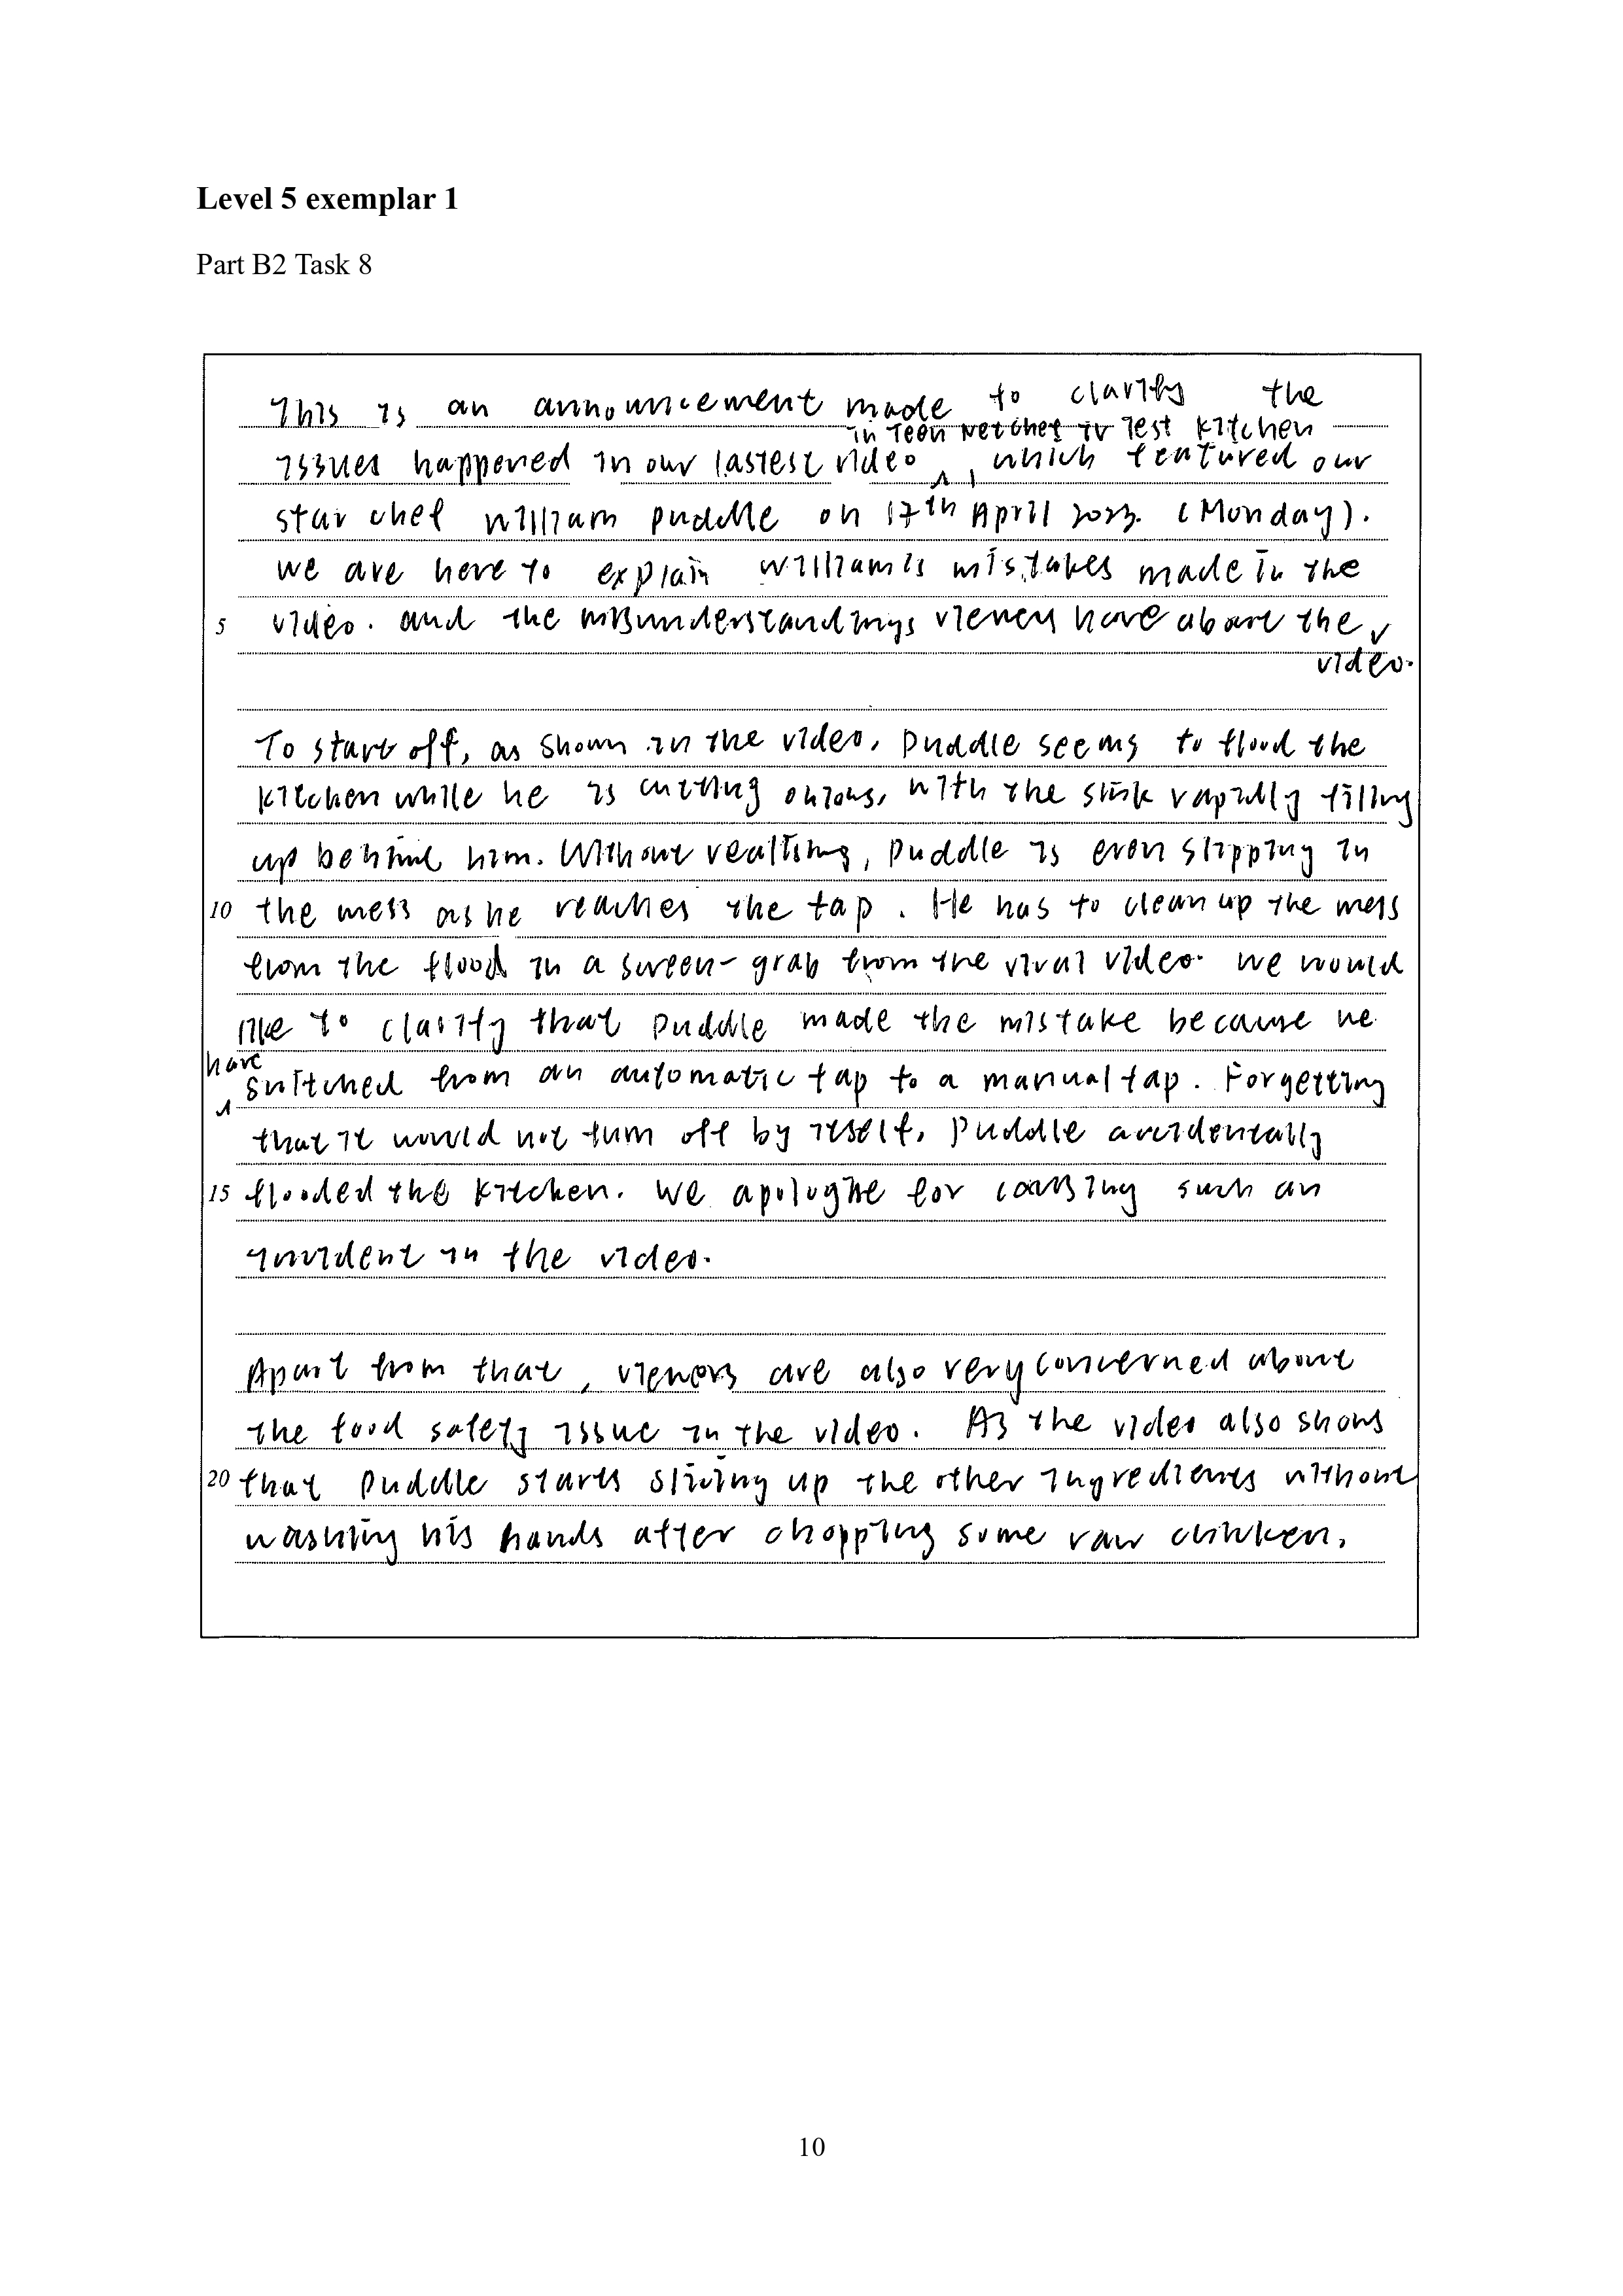 Level 5 exemplar 1
Part B2 Task 8
This is an announcement made to clarify the
in Teen Netcher TV Test Kitchen
issues happened in our lastest video , which featured our
star chef William Puddle on 17th April 2023. (Monday).
We are here to explain William's mistakes made in the
5 video. and the misunderstandings viewers have about the
video.
To start off, as shown in the video, Puddle seems to flood the
kitchen while he is cutting onions, with the sink rapidly filling
up behind him. Without realising, Puddle is even slipping in
10 the mess as he reaches the tap. He has to clean up the mess
from the flood in a screen-grab from the viral video. We would
like to clarify that Puddle made the mistake because he
have
switched from an automatic tap to a manual tap. Forgetting
that it would not turn off by itself, Puddle accidentally
15 flooded the kitchen. We apologise for causing such an
incident in the video.
Apart from that, viewers are also very concerned about
the food safety issue in the video. As the video also shows
20 that Puddle starts slicing up the other ingredients without
washing his hands after chopping some raw chicken.
10